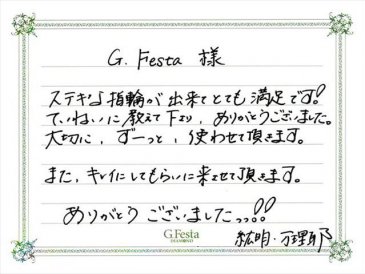 G. Festa 様
ステキな指輪が出来てとても満足です!
ていねいに教えて下さり、ありがとうございました。
大切に、ずーっと、使わせて頂きます。
また、キレイにしてもらいに来させて頂きます。
ありがとうございましたっっ!!
G.Festa
DIAMOND
紘明・万理耶